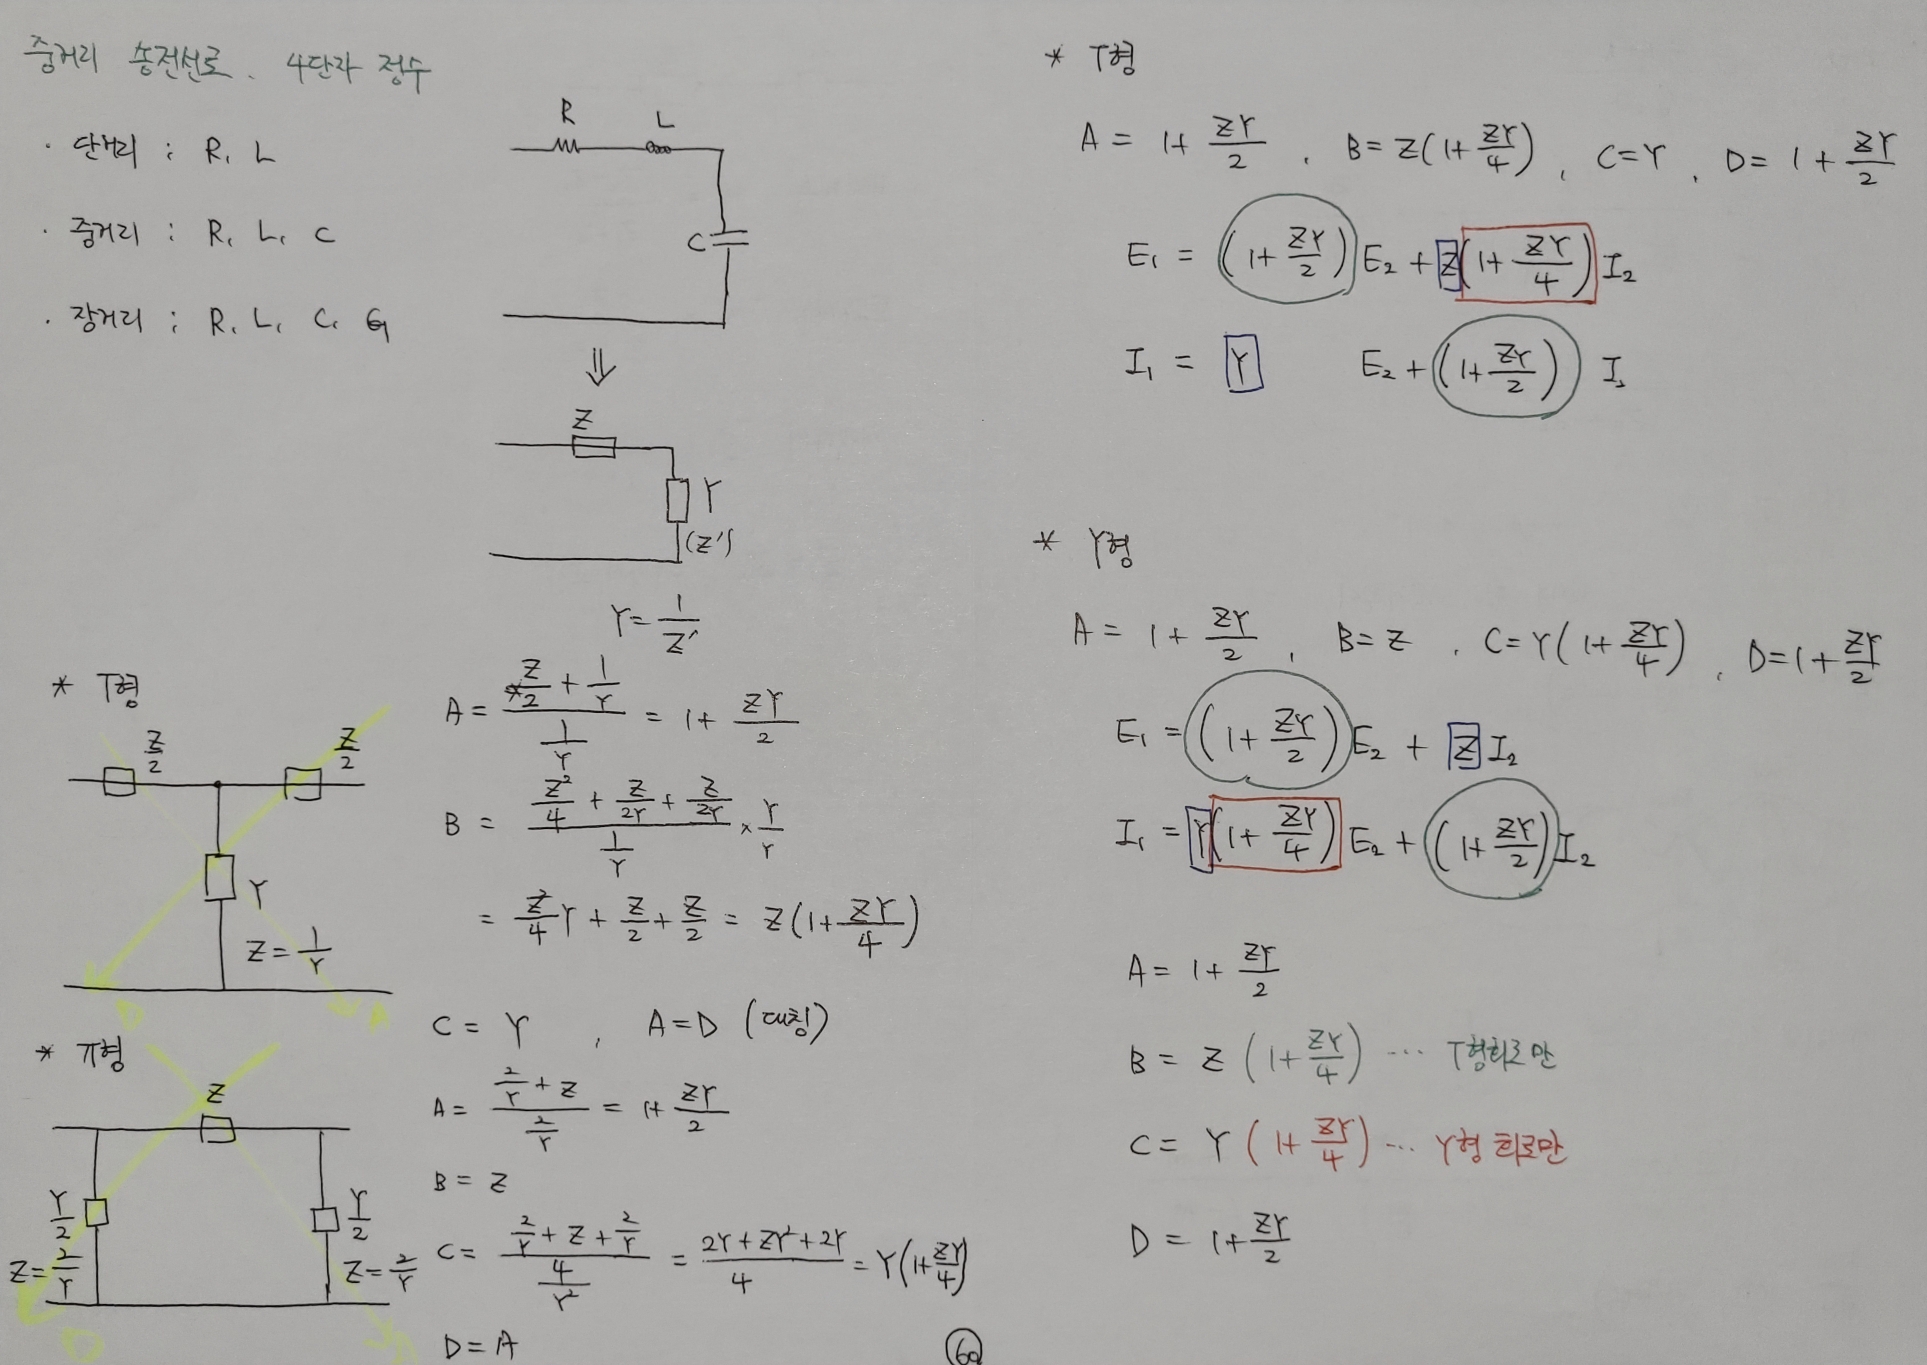 중거리 송전선로. 4단자 정수
· 단거리 : R, L
· 중거리 : R, L, C
· 장거리 : R, L, C, G
R L
C
⇓
Z
Y
(Z')
Y = 1/Z'
* T형
Z/2 Z/2
Y
Z = 1/Y
D A
A = (Z/2 + 1/Y)/(1/Y) = 1 + ZY/2
B = (Z²/4 + Z/2Y + Z/2Y)/(1/Y) × Y/Y
= Z²/4 Y + Z/2 + Z/2 = Z(1 + ZY/4)
C = Y , A = D (대칭)
* π형
Z
Y/2 Y/2
Z = 2/Y Z = 2/Y
D A
A = (2/Y + Z)/(2/Y) = 1 + ZY/2
B = Z
C = (2/Y + Z + 2/Y)/(4/Y²) = (2Y + ZY² + 2Y)/4 = Y(1 + ZY/4)
D = A
60
* T형
A = 1 + ZY/2 , B = Z(1 + ZY/4) , C = Y , D = 1 + ZY/2
E₁ = (1 + ZY/2) E₂ + Z(1 + ZY/4) I₂
I₁ = Y E₂ + (1 + ZY/2) I₂
* Y형
A = 1 + ZY/2 , B = Z , C = Y(1 + ZY/4) , D = 1 + ZY/2
E₁ = (1 + ZY/2) E₂ + Z I₂
I₁ = Y(1 + ZY/4) E₂ + (1 + ZY/2) I₂
A = 1 + ZY/2
B = Z (1 + ZY/4) ··· T형회로만
C = Y (1 + ZY/4) ··· Y형 회로만
D = 1 + ZY/2